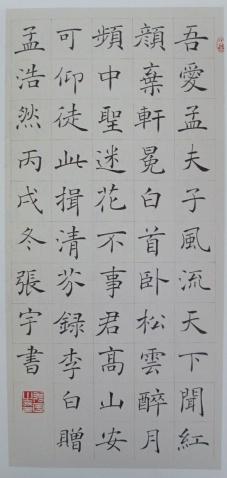 吾愛孟夫子風流天下聞紅
顏棄軒冕白首臥松雲醉月
頻中聖迷花不事君高山安
可仰徒此揖清芬錄李白贈
孟浩然丙戌冬張宇書